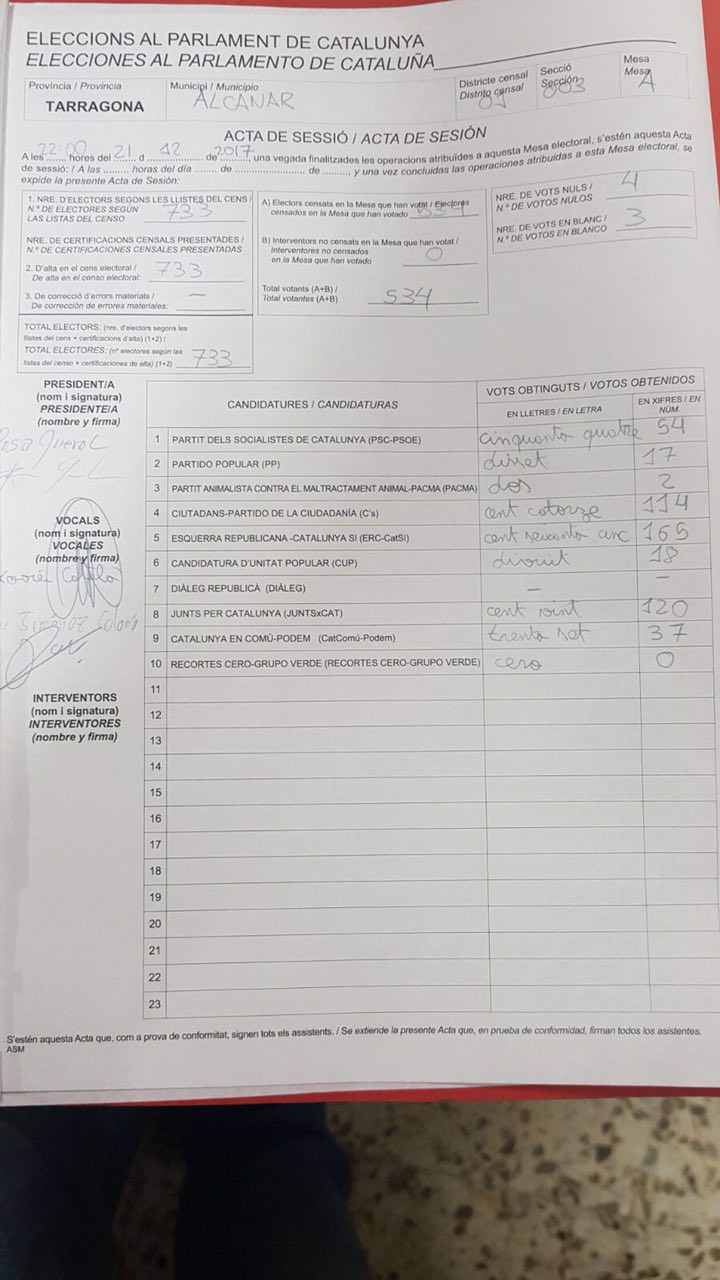 ELECCIONS AL PARLAMENT DE CATALUNYA
ELECCIONES AL PARLAMENTO DE CATALUÑA
Província / Provincia
TARRAGONA
Municipi / Municipio
ALCANAR
Districte censal
Distrito censal
01
Secció
Sección
003
Mesa
Mesa
A
ACTA DE SESSIÓ / ACTA DE SESIÓN
A les 22:00 hores del 21 d 12 de 2017 una vegada finalitzades les operacions atribuïdes a aquesta Mesa electoral, s'estén aquesta Acta
de sessió: / A las ........ horas del día ....... de ........................... de ........ y una vez concluidas las operaciones atribuidas a esta Mesa electoral, se
expide la presente Acta de Sesión:
1. NRE. D'ELECTORS SEGONS LES LLISTES DEL CENS /
N.º DE ELECTORES SEGÚN
LAS LISTAS DEL CENSO 733
NRE. DE CERTIFICACIONS CENSALS PRESENTADES /
N.º DE CERTIFICACIONES CENSALES PRESENTADAS
2. D'alta en el cens electoral /
De alta en el censo electoral: 733
3. De correcció d'errors materials / —
De corrección de errores materiales:
TOTAL ELECTORS: (nre. d'electors segons les
llistes del cens + certificacions d'alta) (1+2) /
TOTAL ELECTORES: (nº electores según las
listas del censo + certificaciones de alta) (1+2) 733
A) Electors censats en la Mesa que han votat / Electores
censados en la Mesa que han votado 534
B) Interventors no censats en la Mesa que han votat /
Interventores no censados
en la Mesa que han votado 0
Total votants (A+B) /
Total votantes (A+B) 534
NRE. DE VOTS NULS /
N.º DE VOTOS NULOS 4
NRE. DE VOTS EN BLANC /
N.º DE VOTOS EN BLANCO 3
PRESIDENT/A
(nom i signatura)
PRESIDENTE/A
(nombre y firma)
VOCALS
(nom i signatura)
VOCALES
(nombre y firma)
INTERVENTORS
(nom i signatura)
INTERVENTORES
(nombre y firma)
CANDIDATURES / CANDIDATURAS
VOTS OBTINGUTS / VOTOS OBTENIDOS
EN LLETRES / EN LETRA
EN XIFRES / EN NÚM.
1 PARTIT DELS SOCIALISTES DE CATALUNYA (PSC-PSOE) cinquanta quatre 54
2 PARTIDO POPULAR (PP) disset 17
3 PARTIT ANIMALISTA CONTRA EL MALTRACTAMENT ANIMAL-PACMA (PACMA) dos 2
4 CIUTADANS-PARTIDO DE LA CIUDADANÍA (C's) cent catorze 114
5 ESQUERRA REPUBLICANA -CATALUNYA SI (ERC-CatSí) cent seixanta cinc 165
6 CANDIDATURA D'UNITAT POPULAR (CUP) divuit 18
7 DIÀLEG REPUBLICÀ (DIÀLEG) — —
8 JUNTS PER CATALUNYA (JUNTSxCAT) cent vint 120
9 CATALUNYA EN COMÚ-PODEM (CatComú-Podem) trenta set 37
10 RECORTES CERO-GRUPO VERDE (RECORTES CERO-GRUPO VERDE) cero 0
11
12
13
14
15
16
17
18
19
20
21
22
23
S'estén aquesta Acta que, com a prova de conformitat, signen tots els assistents. / Se extiende la presente Acta que, en prueba de conformidad, firman todos los asistentes.
ASM